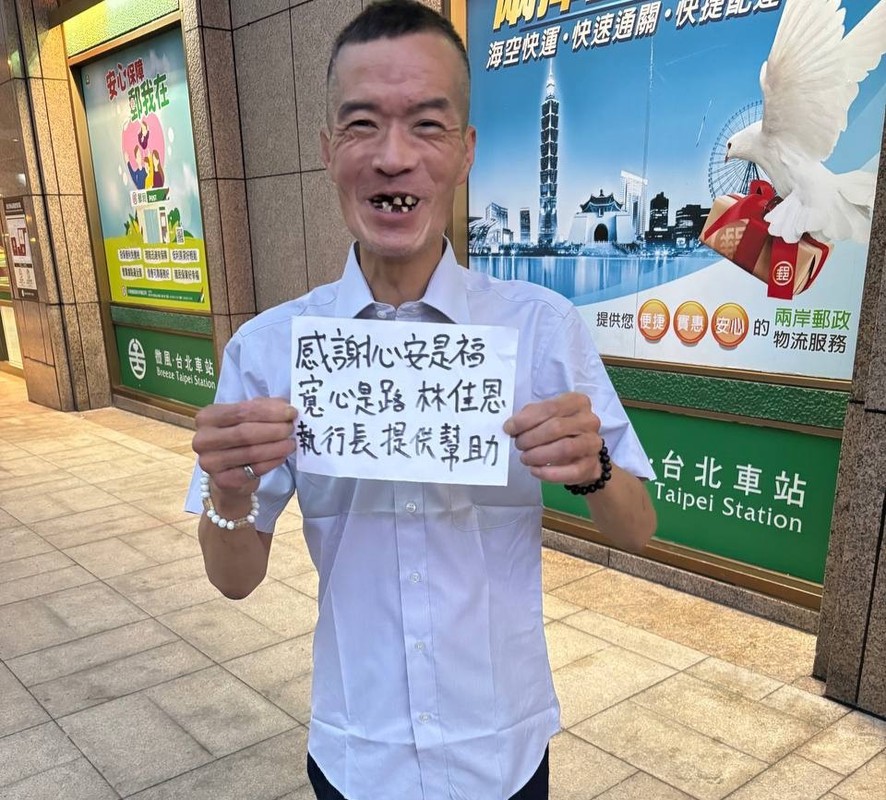 安心保障
郵我在
POST
微風·台北車站
Breeze Taipei Station
海空快運·快速通關·快捷配達
提供您 便捷 實惠 安心 的 兩岸郵政
物流服務
郵
感謝心安是福
寬心是路 林佳恩
執行長提供幫助
·台北車站
Taipei Station